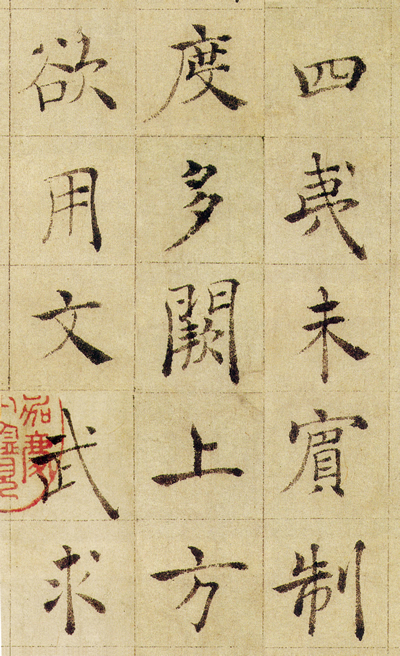 四夷未賓制
度多闕上方
欲用文武求
嘉慶